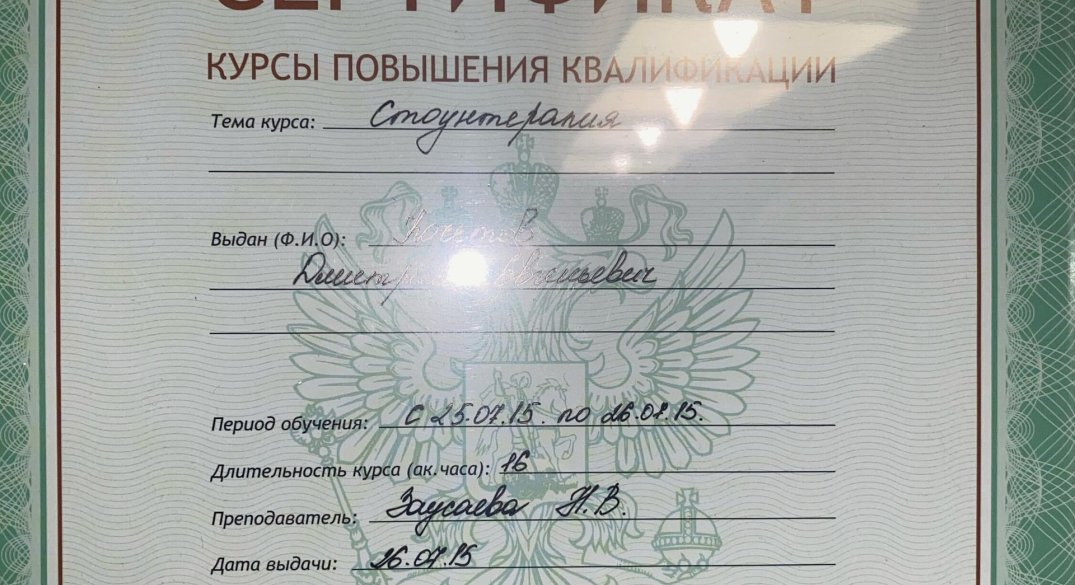 СЕРТИФИКАТ
КУРСЫ ПОВЫШЕНИЯ КВАЛИФИКАЦИИ
Тема курса: Стоунтерапия
Выдан (Ф.И.О): Кочетов
Дмитрий
Период обучения: с 25.07.15. по 26.07.15.
Длительность курса (ак.часа): 16
Преподаватель: Заусаева Н.В.
Дата выдачи: 26.07.15